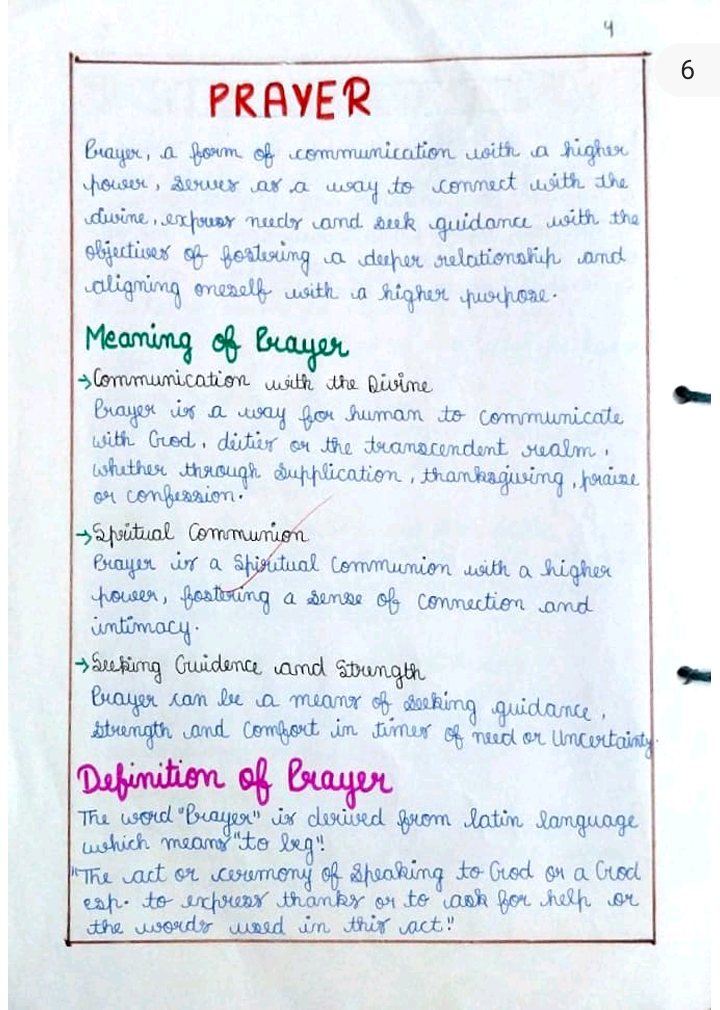 4
6
PRAYER
Prayer, a form of communication with a higher
power, serves as a way to connect with the
divine, express needs and seek guidance with the
objectives of fostering a deeper relationship and
aligning oneself with a higher purpose.
Meaning of Prayer
→Communication with the Divine
Prayer is a way for human to communicate
with God, deities or the transcendent realm,
whether through supplication, thanksgiving, praise
or confession.
→Spritual Communion
Prayer is a Spiritual Communion with a higher
power, fostering a sense of connection and
intimacy.
→Seeking Guidence and Strength
Prayer can be a means of seeking guidance,
strength and comfort in times of need or Uncertainty.
Definition of Prayer
The word "Prayer" is derived from latin language
which means "to beg".
"The act or ceremony of speaking to God or a God
esp. to express thanks or to ask for help or
the words used in this act."